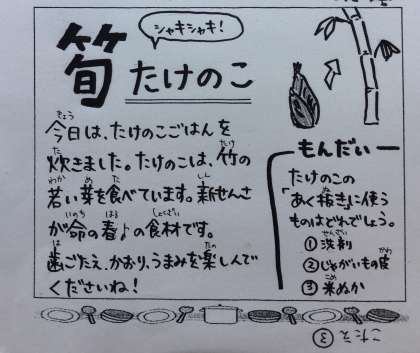 シャキシャキ!
筍 たけのこ
今日は、たけのこごはんを
炊きました。たけのこは、竹の
若い芽を食べています。新せんさ
が命の春♪の食材です。
歯ごたえ、かおり、うまみを楽しんで
くださいね!
もんだい
たけのこの
「あく抜き」に使う
ものはどれでしょう。
①洗剤
②じゃがいもの皮
③米ぬか
こたえ ③